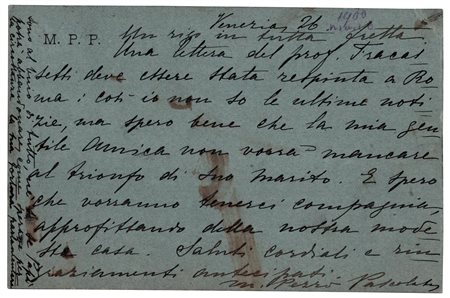 Venezia 26
1900
M. P. P.
Un rigo in tutta fretta
Una lettera del prof. Fracas
setti deve essere stata respinta a Ro-
ma: così io non so le ultime noti
zie, ma spero bene che la mia gen
tile Amica non vorrà mancare
al trionfo di suo marito. E spero
che vorranno tenerci compagnia,
approfittando della nostra mode
sta casa. Saluti cordiali e rin
graziamenti anticipati
M. Pezzè Pascolato